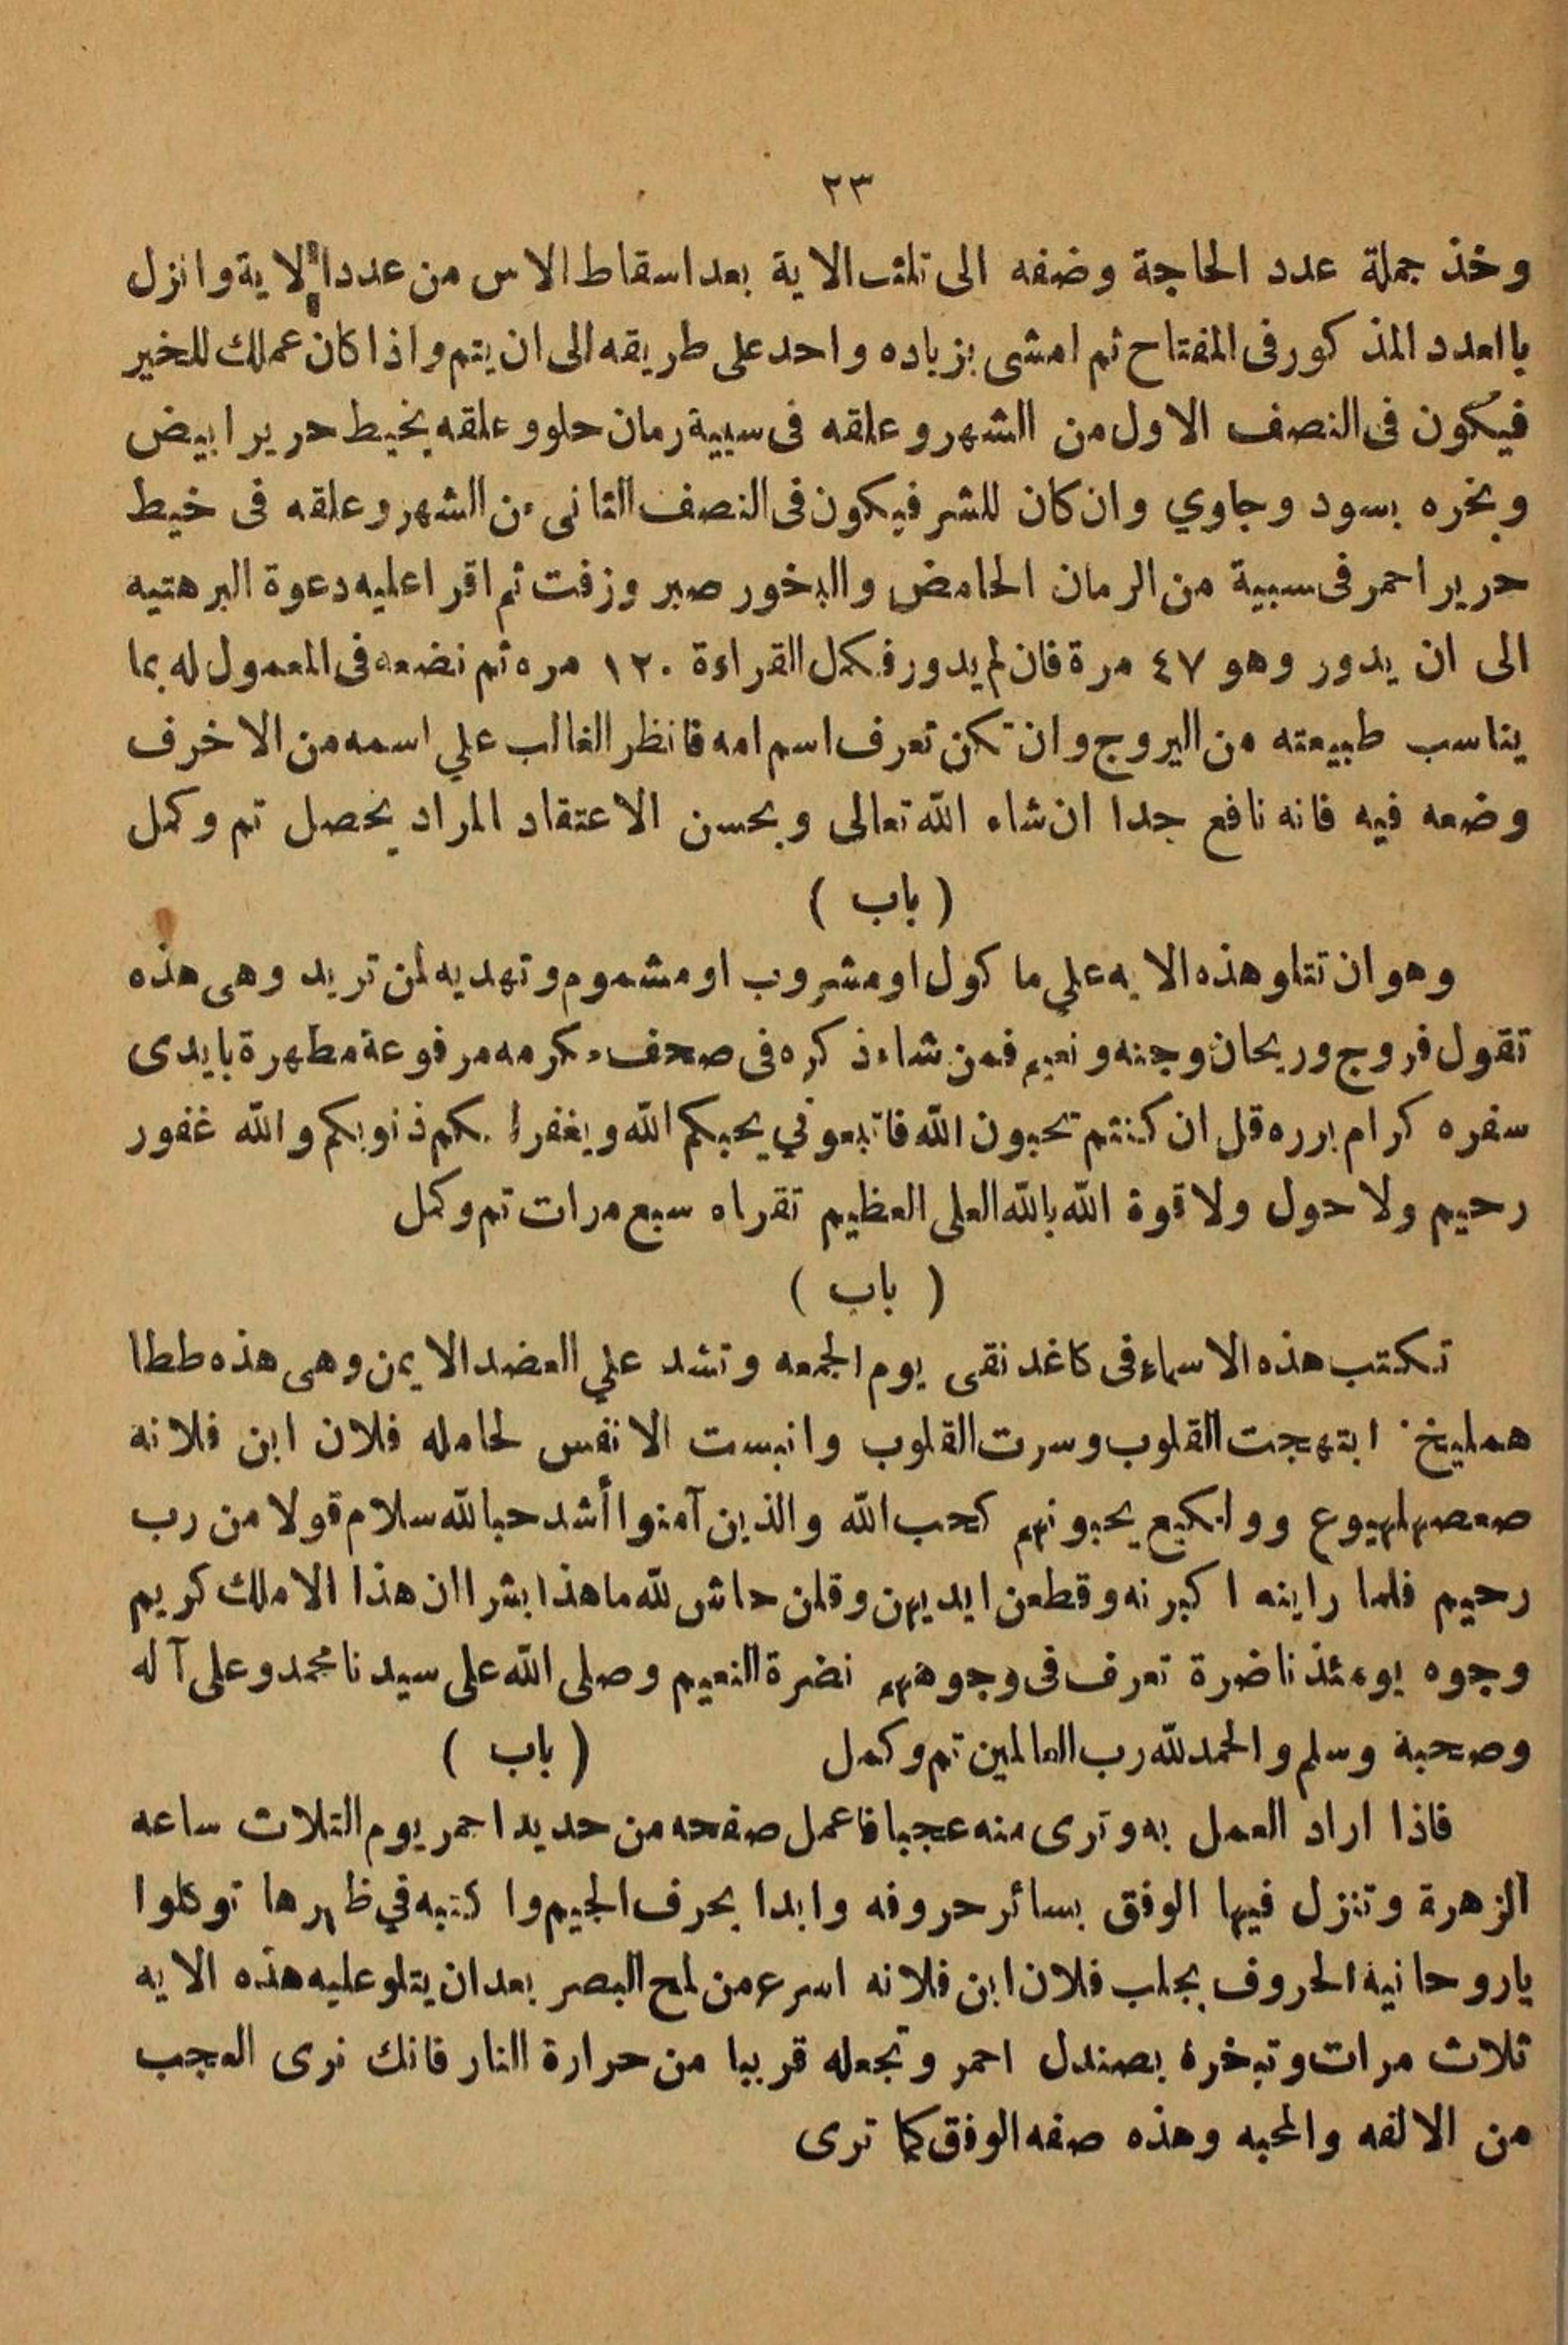 ٢٣
وخذ جملة عدد الحاجة وضفه الى تلث الاية بعد اسقاط الاس من عدد الاية وانزل
باامدد المذكور فى المفتاح ثم امشى بزياده واحد على طريقه الى ان يتم واذا كان عملك للخير
فيكون فى النصف الاول من الشهر وعلقه فى سبية رمان حلو وعلقه بخيط حرير ابيض
وبخره بسود وجاوي وان كان للشر فيكون فى النصف الثانى من الشهر وعلقه فى خيط
حرير احمر فى سبية من الرمان الحامض والبخور صبر وزفت ثم اقرا عليه دعوة البرهتيه
الى ان يدور وهو ٤٧ مرة فان لم يدور فكمل القراءة ١٢٠ مره ثم نضعه فى المعمول له بما
يناسب طبيعته من اليروج وان تكن تعرف اسم امه فانظر الغالب علي اسمه من الاخرف
وضعه فيه فانه نافع جدا ان شاء الله تعالى وبحسن الاعتقاد المراد يحصل تم وكمل
( باب )
وهو ان تتلو هذه الايه علي ماكول او مشروب او مشموم وتهديه لمن تريد وهى هذه
تقول فروج وريحان وجنه ونعيم فمن شاء ذكره فى صحف مكرمه مرفوعة مطهرة بايدى
سفره كرام برره قل ان كنتم تحبون الله فاتبعوني يحبكم الله ويغفر لكم ذنوبكم والله غفور
رحيم ولا حول ولا قوة الله بالله العلى العظيم تقراه سبع مرات تم وكمل
( باب )
تكتب هذه الاسماء فى كاغد نقى يوم الجمعه وتشد علي العضد الايمن وهى هذه ططا
هملیخ ابتهجت القلوب وسرت القلوب وانبست الانفس لحامله فلان ابن فلانه
صعصهلهيوع ووايكيع يحبونهم كحب الله والذين آمنوا أشد حبالله سلام قولا من رب
رحيم فلما راينه اكبرنه وقطعن ايديهن وقلن حاش لله ما هذا بشرا ان هذا الا ملك كريم
وجوه يومئذ ناضرة تعرف فى وجوههم نضرة النعيم وصلى الله على سيدنا محمد وعلى آله
وصحبة وسلم والحمد لله رب العالمين تم وكمل ( باب )
فاذا اراد العمل به وترى منه عجبا فاعمل صفحه من حديد احمر يوم التلاث ساعه
الزهرة وتنزل فيها الوفق بسائر حروفه وابدا بحرف الجيم واكتبه في ظهرها توكلوا
ياروحانية الحروف بجلب فلان ابن فلانه اسرع من لمح البصر بعد ان يتلو عليه هذه الايه
ثلاث مرات وتبخرة بصندل احمر وتجعله قريبا من حرارة النار فانك نرى العجب
من الالفه والمحبه وهذه صفه الوفق كما ترى